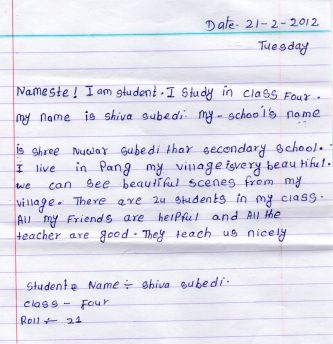 Date- 21-2-2012
Tuesday
Nameste! I am student. I study in class Four.
my name is shiva subedi. my-school's name
is shree Nuwar subedi thar secondary school.
I live in Pang my village is very beautiful.
we can see beautiful scenes from my
village. There are 24 students in my class.
All my Friends are helpful and All the
teacher are good. They teach us nicely
Student Name ÷ shiva subedi.
class - Four
Roll ÷ 21